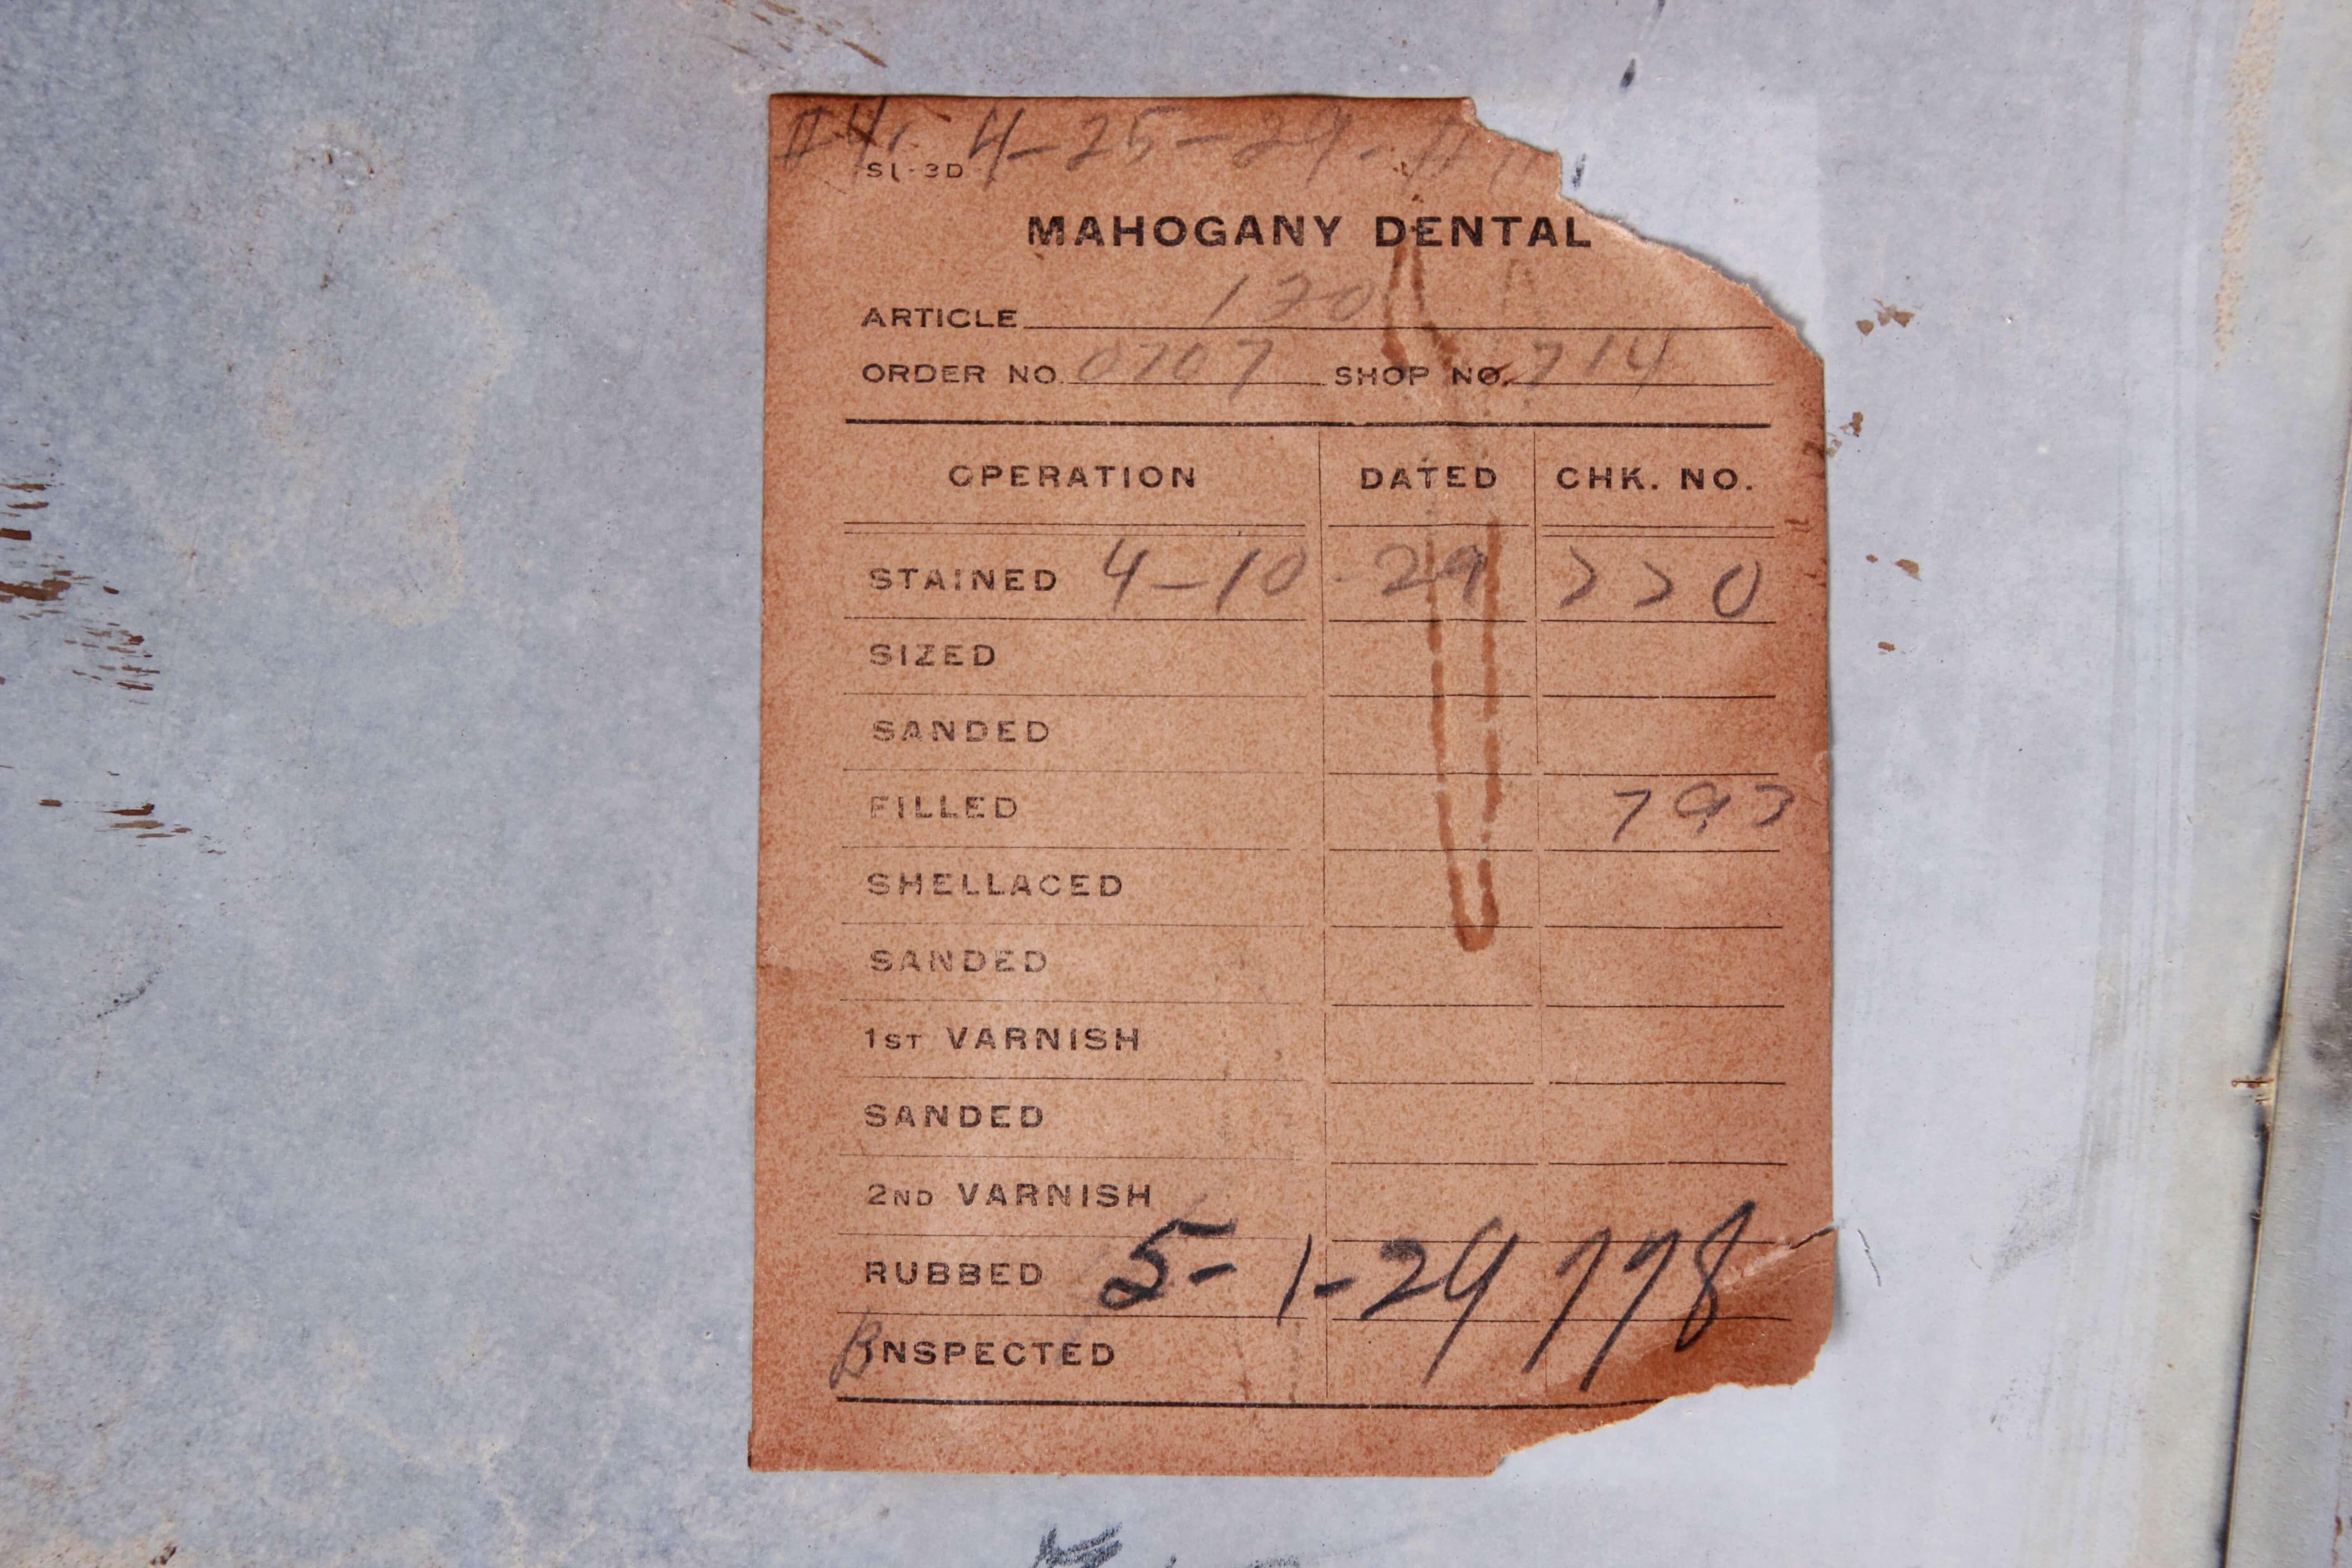 #4. 4-25-29-
S(-3D
MAHOGANY DENTAL
ARTICLE 170
ORDER NO. 0707 SHOP NO. 714
OPERATION DATED CHK. NO.
STAINED 4-10-29 770
SIZED
SANDED
FILLED 797
SHELLACED
SANDED
1ST VARNISH
SANDED
2ND VARNISH
RUBBED 5-1-29 778
INSPECTED